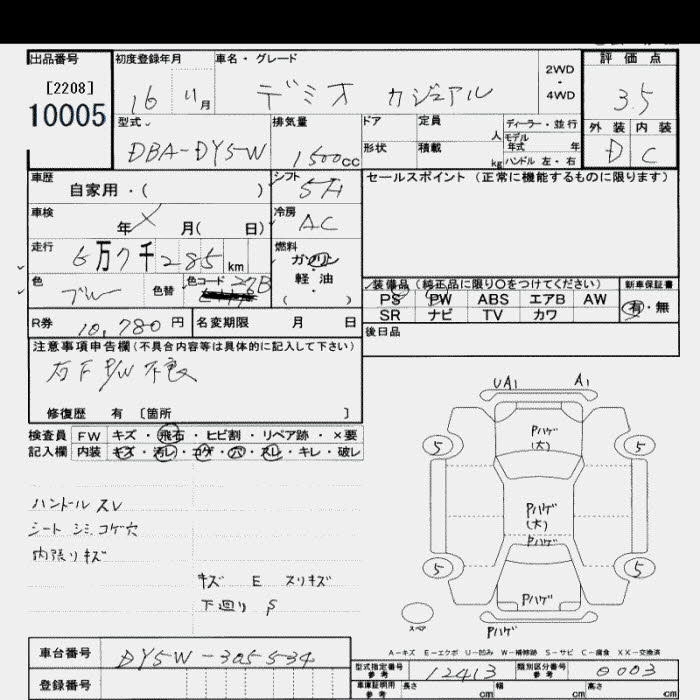 出品番号
[2208]
10005
初度登録年月
16 11月
車名・グレード
デミオ カジュアル
2WD
・
4WD
評価点
3.5
外装 内装
D C
型式
DBA-DY5W
排気量
1500cc
ドア
定員
人
形状
積載
kg
ディーラー・並行
モデル
年式 年
ハンドル 左・右
車歴
自家用・( )
シフト
5A
セールスポイント (正常に機能するものに限ります)
車検
年 X 月( 日)
冷房
AC
走行
6万7千285km
燃料
ガソリン
・
軽・油
・
( )
色
ブルー
色替
色コード 27B
装備品 (純正品に限り〇をつけてください)
PS PW ABS エアB AW
SR ナビ TV カワ
新車保証書
有・無
R券 10,780円
名変期限 月 日
後日品
注意事項申告欄(不具合内容等は具体的に記入して下さい)
右F P/W 不良
修復歴 有 [箇所 ]
検査員
記入欄
FW キズ・飛石・ヒビ割・リペア跡・×要
内装 キズ・汚レ・コゲ・穴・スレ・キレ・破レ
ハンドル スレ
シート シミ コゲ穴
内張りキズ
キズ E スリキズ
下廻り S
UA1 A1
Pハゲ
(大)
5 5
Pハゲ
(大)
Pハゲ
5 5
Pハゲ
スペア
Pハゲ
A-キズ E-エクボ U-凹み W-補修跡 S-サビ C-腐食 XX-交換済
車台番号
DY5W-305534
登録番号
型式指定番号
参考
12413
類別区分番号
参考
0003
車庫証明用
参考
長さ cm
幅 cm
高さ cm